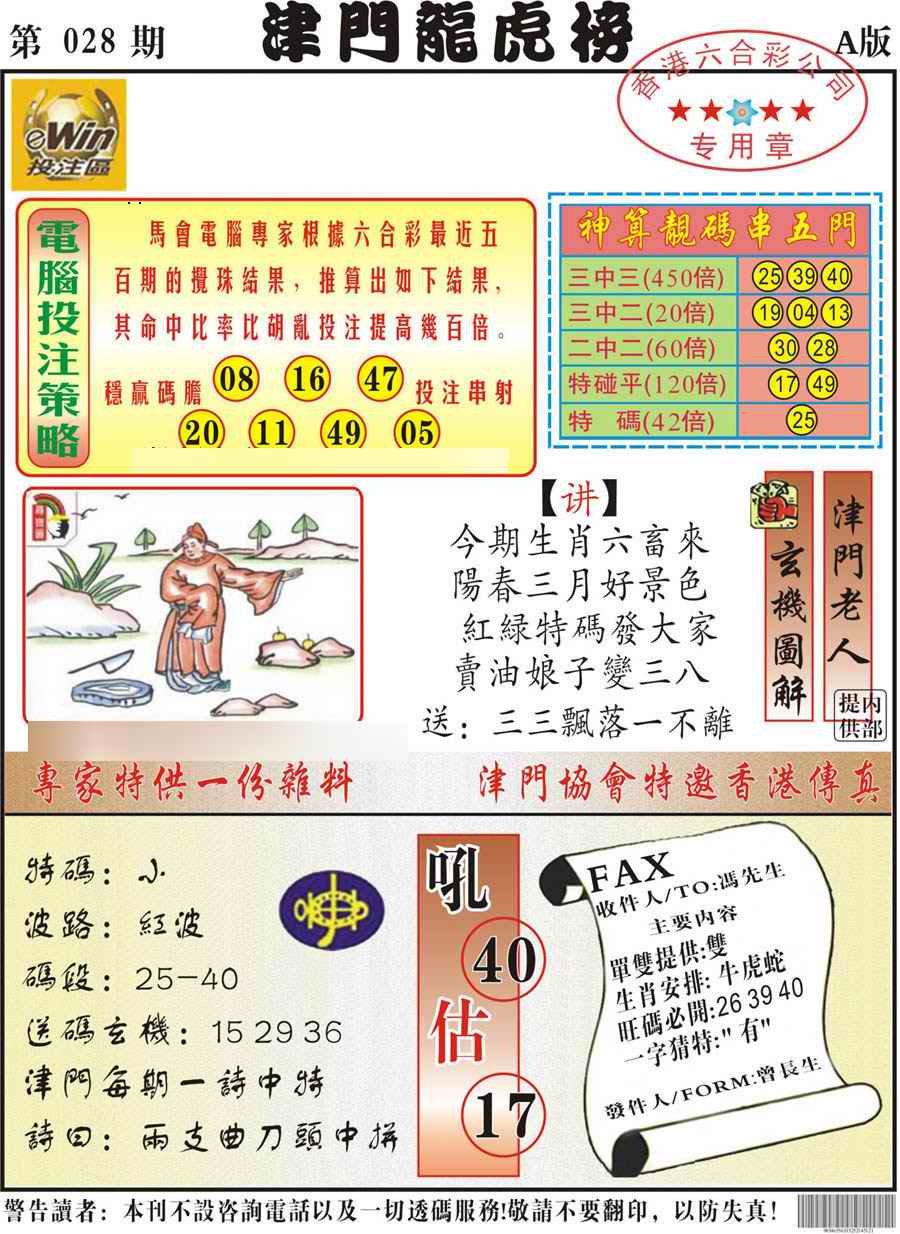 第 028 期
津門龍虎榜
A版
香港六合彩公司
专用章
eWin
投注區
電腦投注策略
馬會電腦專家根據六合彩最近五
百期的攪珠結果，推算出如下結果，
其命中比率比胡亂投注提高幾百倍。
穩贏碼膽 08 16 47 投注串射
20 11 49 05
神算靚碼串五門
三中三(450倍) 25 39 40
三中二(20倍) 19 04 13
二中二(60倍) 30 28
特碰平(120倍) 17 49
特 碼(42倍) 25
【讲】
今期生肖六畜來
陽春三月好景色
紅緑特碼發大家
賣油娘子變三八
送：三三飄落一不離
玄機圖解
津門老人
内部提供
專家特供一份雜料
津門協會特邀香港傳真
特碼：小
波路：紅波
碼段：25—40
送碼玄機：15 29 36
津門每期一詩中特
詩曰：兩支曲刀頭中拼
吼
40
估
17
FAX
收件人/TO:馮先生
主要内容
單雙提供:雙
生肖安排: 牛虎蛇
旺碼必開:26 39 40
一字猜特:"有"
發件人/FORM:曾長生
警告讀者：本刊不設咨詢電話以及一切透碼服務!敬請不要翻印，以防失真!